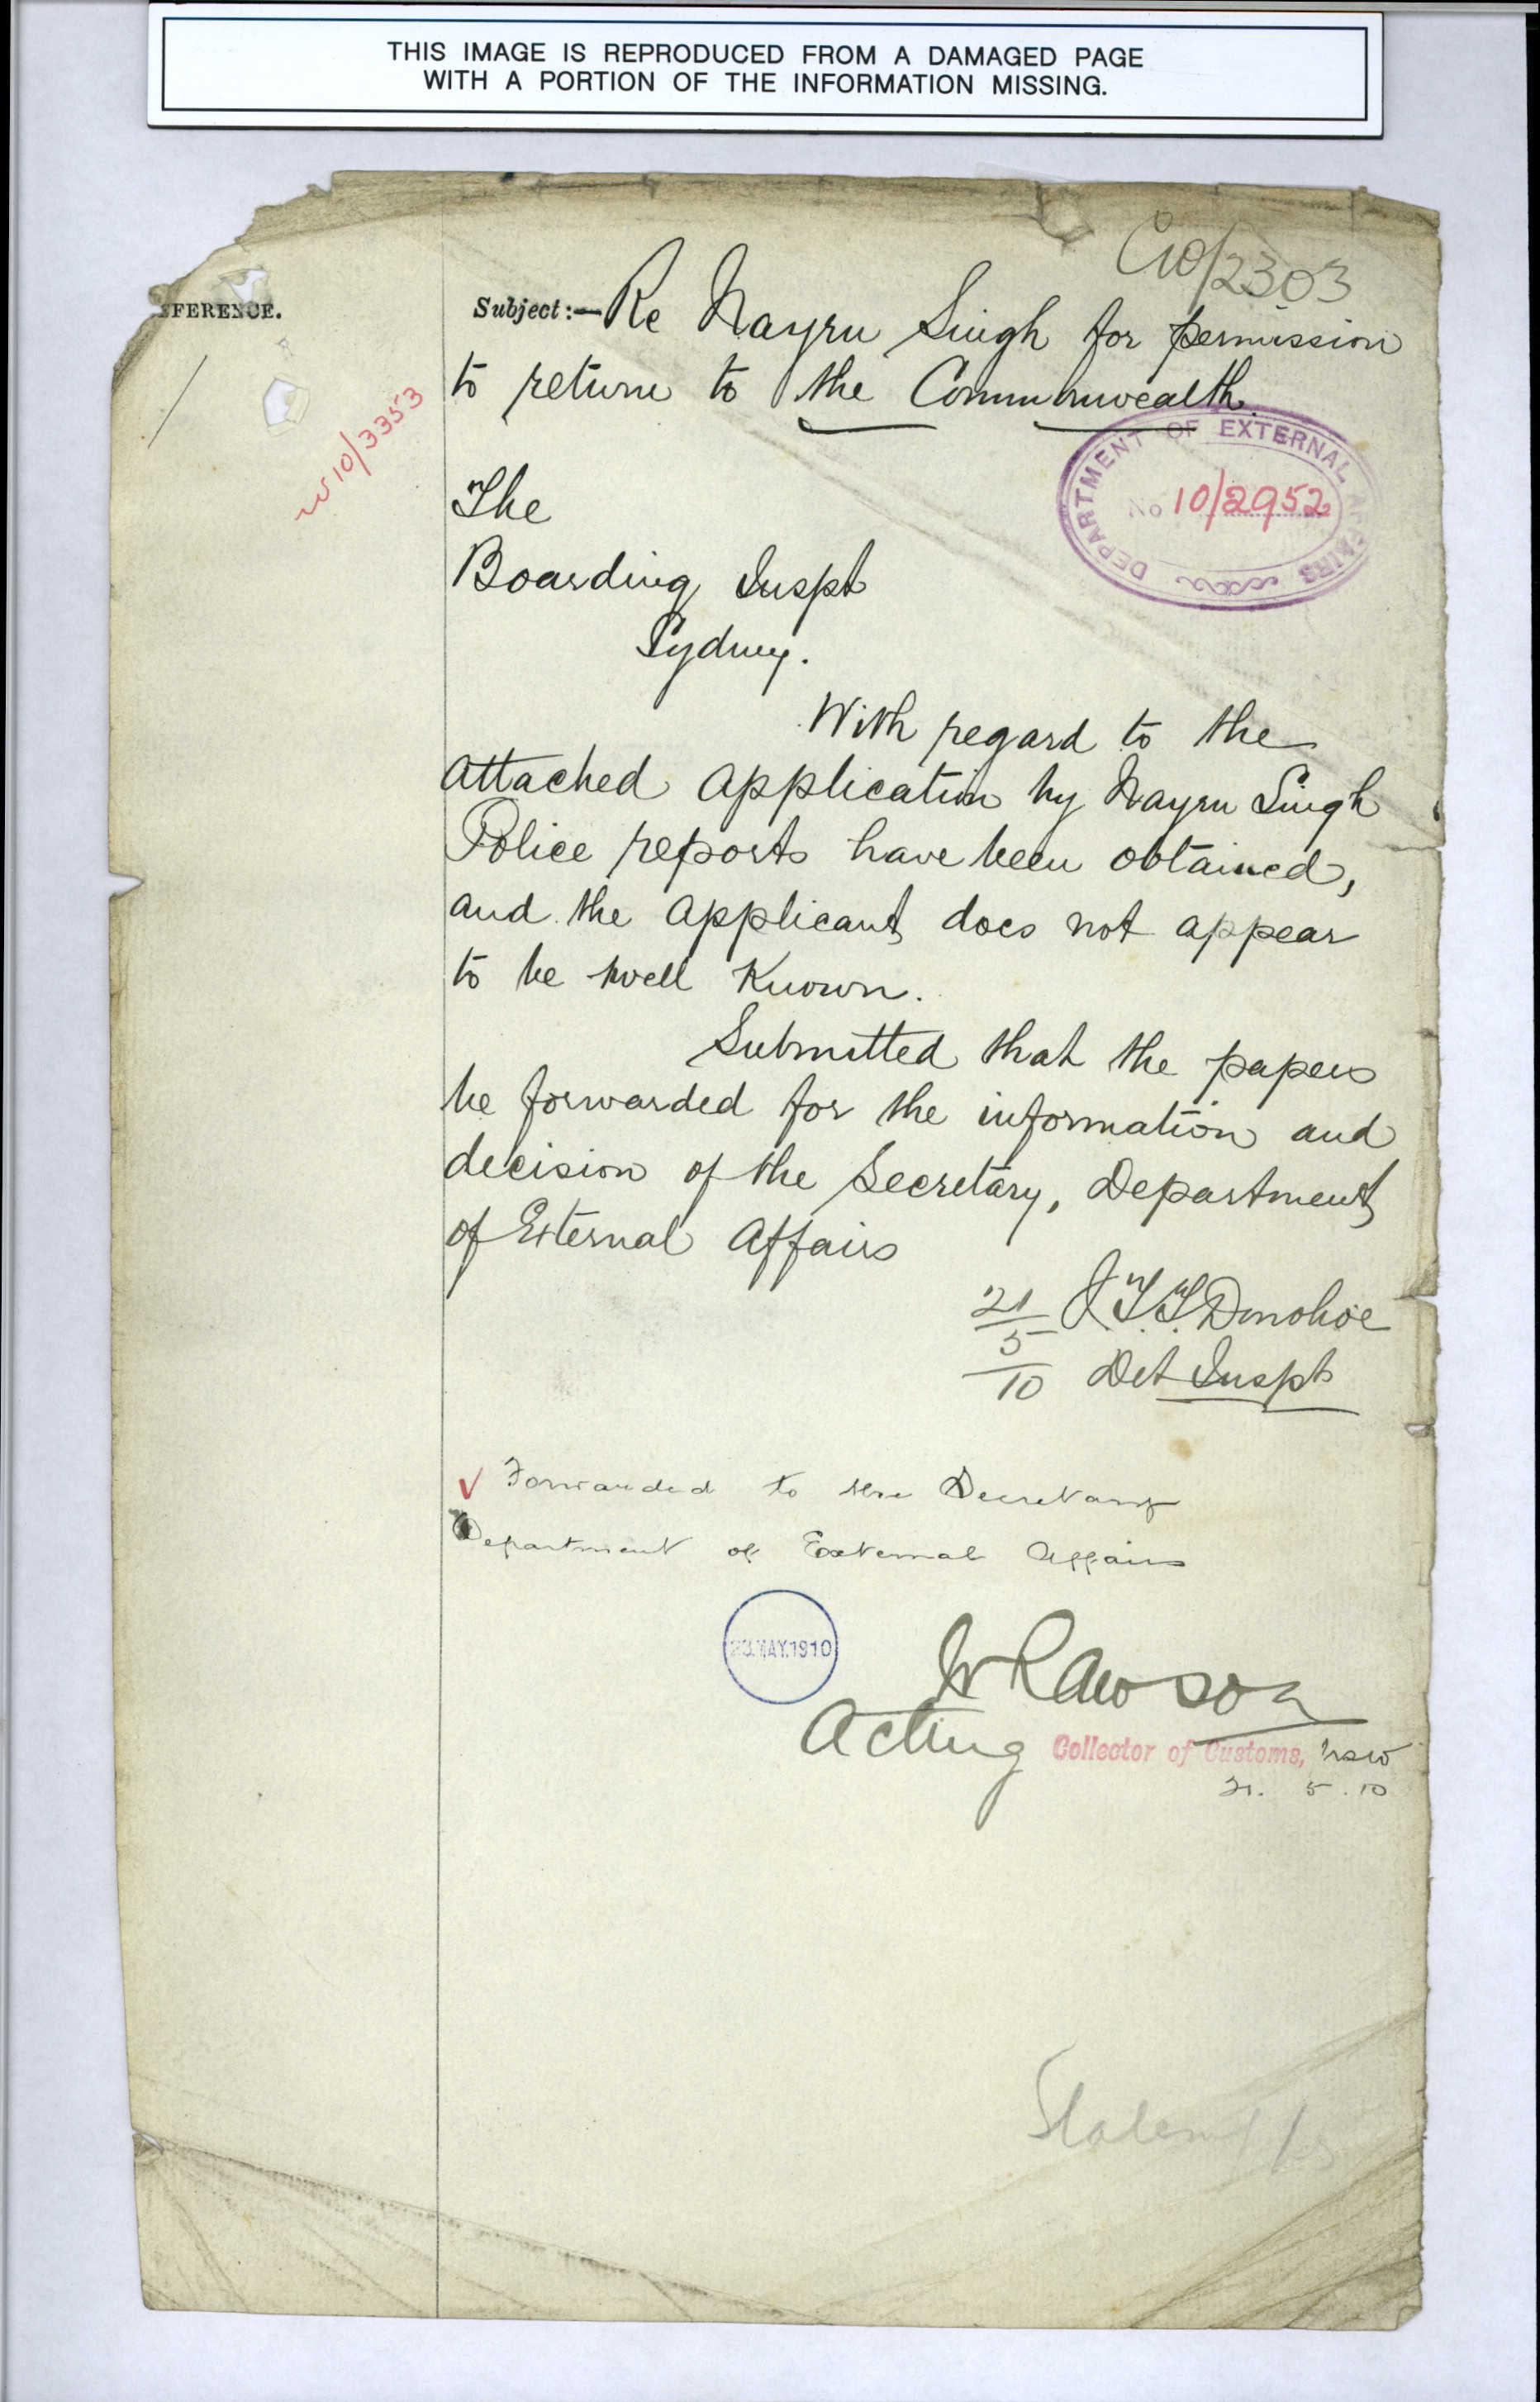 THIS IMAGE IS REPRODUCED FROM A DAMAGED PAGE
WITH A PORTION OF THE INFORMATION MISSING.
C10/2303
FERENCE.
Subject:— Re Nayru Singh for permission
to return to the Commonwealth.
10/3353
DEPARTMENT OF EXTERNAL AFFAIRS
No 10/2952
The
Boarding Inspt
Sydney.
With regard to the
attached application by Nayru Singh
Police reports have been obtained,
and the applicant does not appear
to be well known.
Submitted that the papers
be forwarded for the information and
decision of the Secretary, Department
of External Affairs
21/5/10 J.T.T. Donohoe
Det Inspt
Forwarded to the Secretary
Department of External Affairs
23.MAY.1910
Acting Collector of Customs, NSW
21. 5. 10